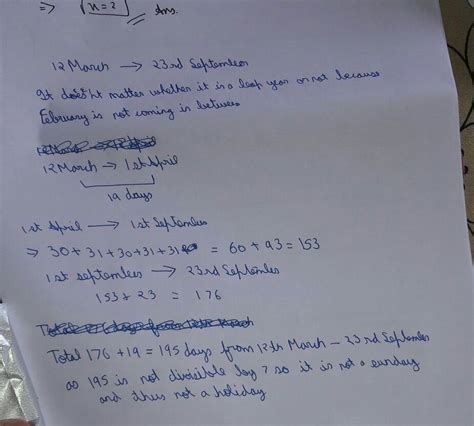 => √n=2 Ans.
12 March → 23rd September
It doesn't matter whether it is a leap year or not because
February is not coming in between
12 March → 1st April
19 days
1st April → 1st September
⇒ 30+31+30+31+31 = 60+93=153
1st september → 23rd September
153+23 = 176
Total 176+19=195 days from 12th March - 23rd September
as 195 is not divisible by 7 so it is not a sunday
and thus not a holiday